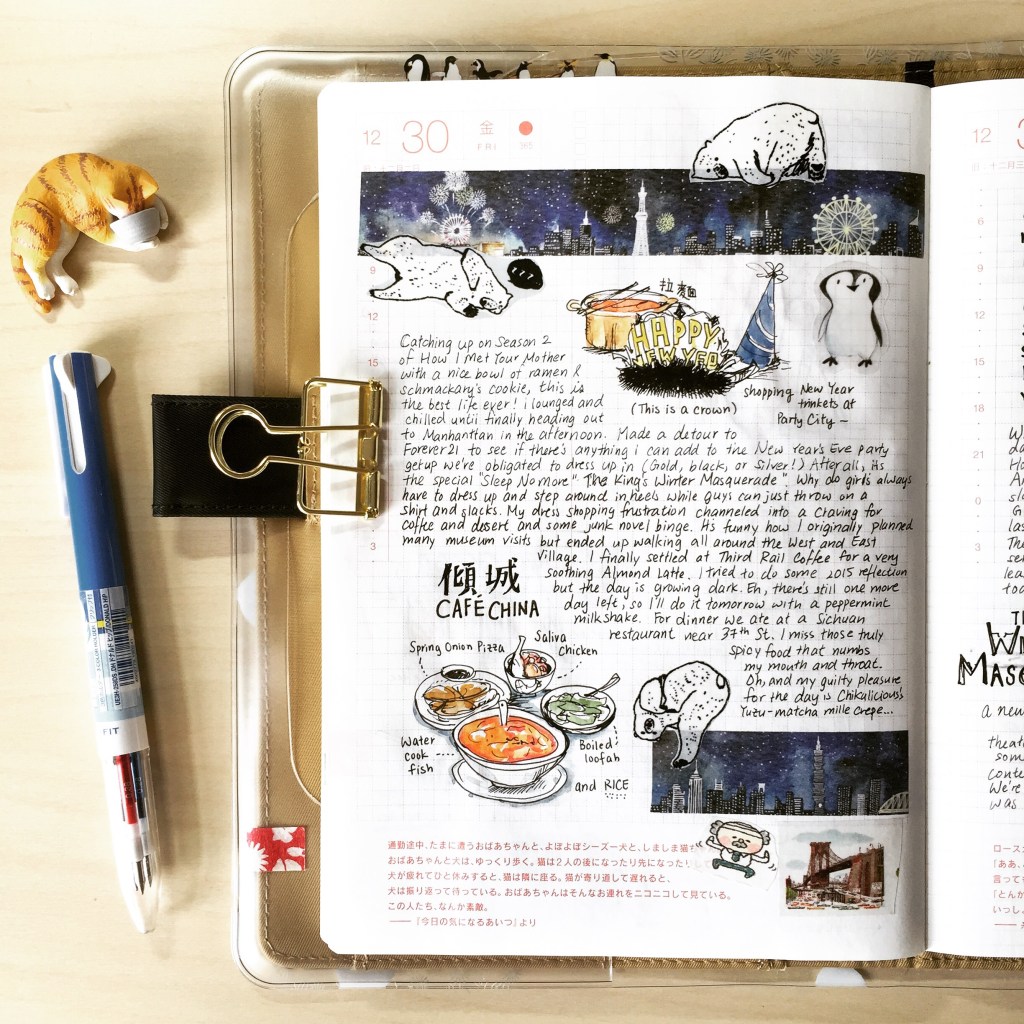 12 30 金 FRI 365
9
12
15
18
21
0
3
拉麺
HAPPY NEW YEA
(This is a crown)
shopping New Year
trinkets at
Party City ~
Catching up on Season 2
of How I Met Your Mother
with a nice bowl of ramen &
schmackary's cookie, this is
the best life ever! i lounged and
chilled until finally heading out
to Manhanttan in the afternoon. Made a detour to
Forever21 to see if there's anything i can add to the New Year's Eve party
getup we're obligated to dress up in (Gold, black, or Silver!) After all, its
the special "Sleep No More" "The King's Winter Masquerade". Why do girls always
have to dress up and step around in heels while guys can just throw on a
shirt and slacks. My dress shopping frustration channeled into a craving for
coffee and dessert and some junk novel binge. It's funny how I originally planned
many museum visits but ended up walking all around the West and East
Village. I finally settled at Third Rail Coffee for a very
soothing Almond Latte. I tried to do some 2015 reflection
but the day is growing dark. Eh, there's still one more
day left, so I'll do it tomorrow with a peppermint
milkshake. For dinner we ate at a Sichuan
restaurant near 37th St. I miss those truly
spicy food that numbs
my mouth and throat.
Oh, and my guilty pleasure
for the day is Chikalicious's
Yuzu-matcha mille crepe...
傾城
CAFÉ CHINA
Spring Onion Pizza
Saliva
chicken
Water
cook
fish
Boiled
loofah
and RICE
通勤途中、たまに遭うおばあちゃんと、よぼよぼシーズー犬と、しましま猫
おばあちゃんと犬は、ゆっくり歩く。猫は2人の後になったり先になった
犬が疲れてひと休みすると、猫は隣に座る。猫が寄り道して遅れると、
犬は振り返って待っている。おばあちゃんはそんなお連れをニコニコして見ている。
この人たち、なんか素敵。
——『今日の気になるあいつ』より
12
6
9
12
15
18
21
0
3
a new
theat
som
conte
We're
was
ロース
「ああ、
言っても
「とんか
いっしょ
FIT